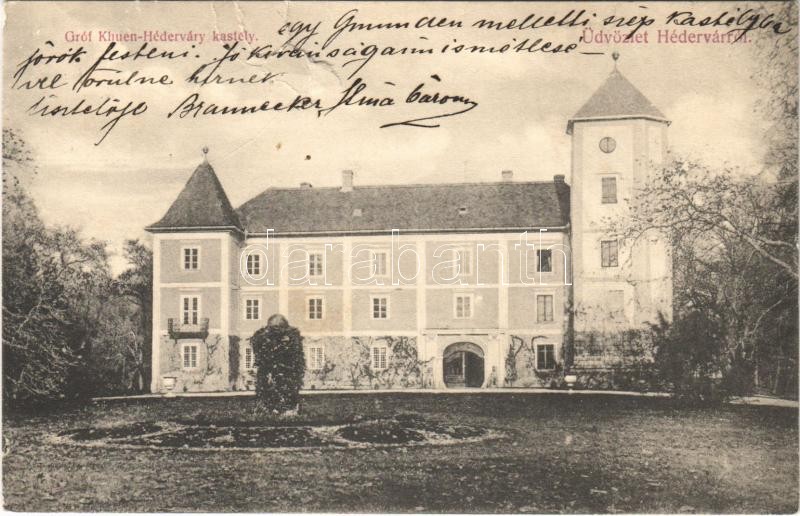 Gróf Khuen-Héderváry kastely.
Üdvözlet Hédervárról.
egy Gmunden melletti szép kastélyba
jörök festeni. Jó kivánságaim ismétlése
vel örülne hirnek
tisztelője Brannecker Ilma báron
darabanth